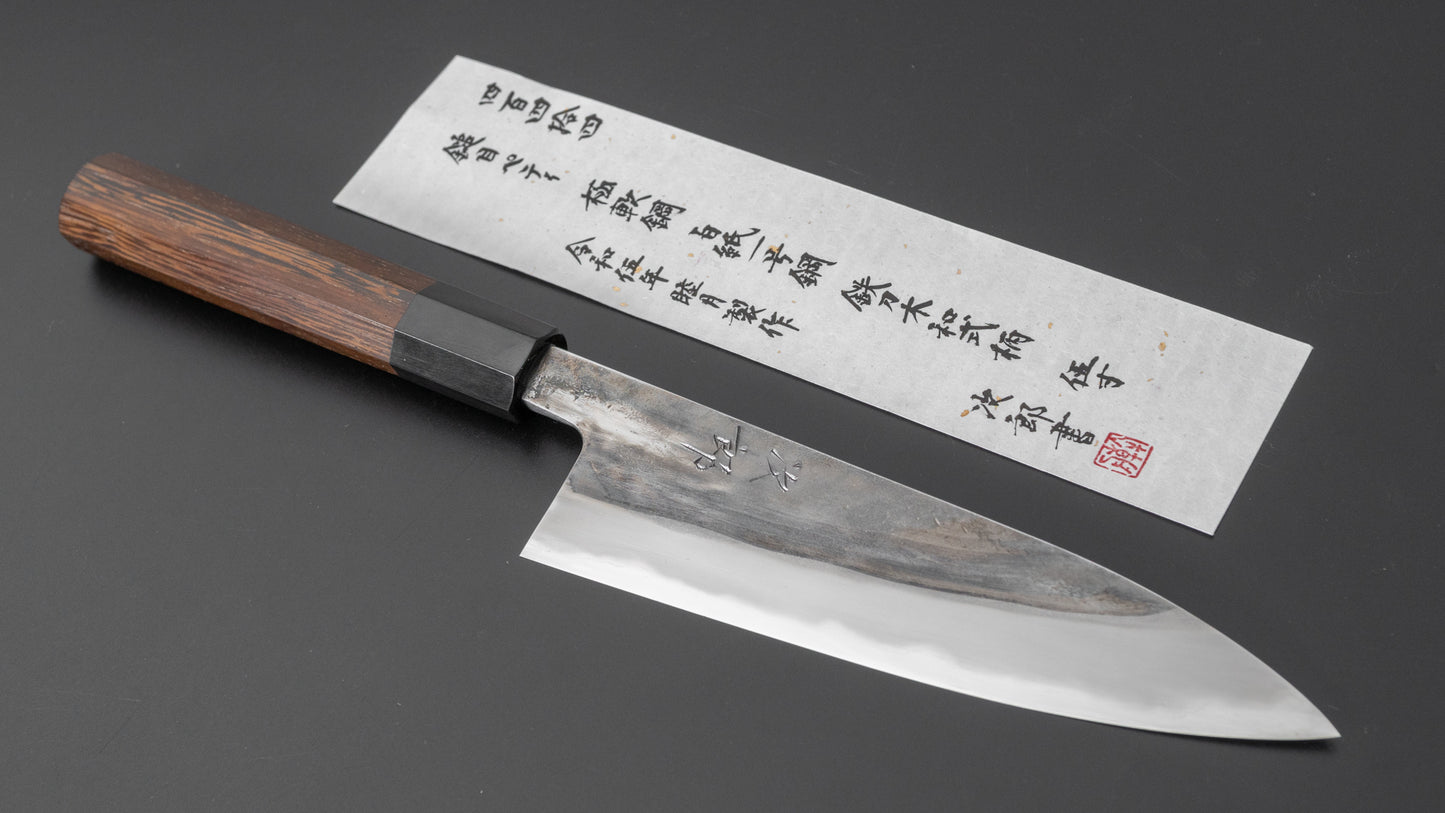 四百四拾四
鎚目ペティ
極軟鋼 白紙一号鋼 鉄刀木和式柄 伍寸
令和伍年睦月製作
次郎書